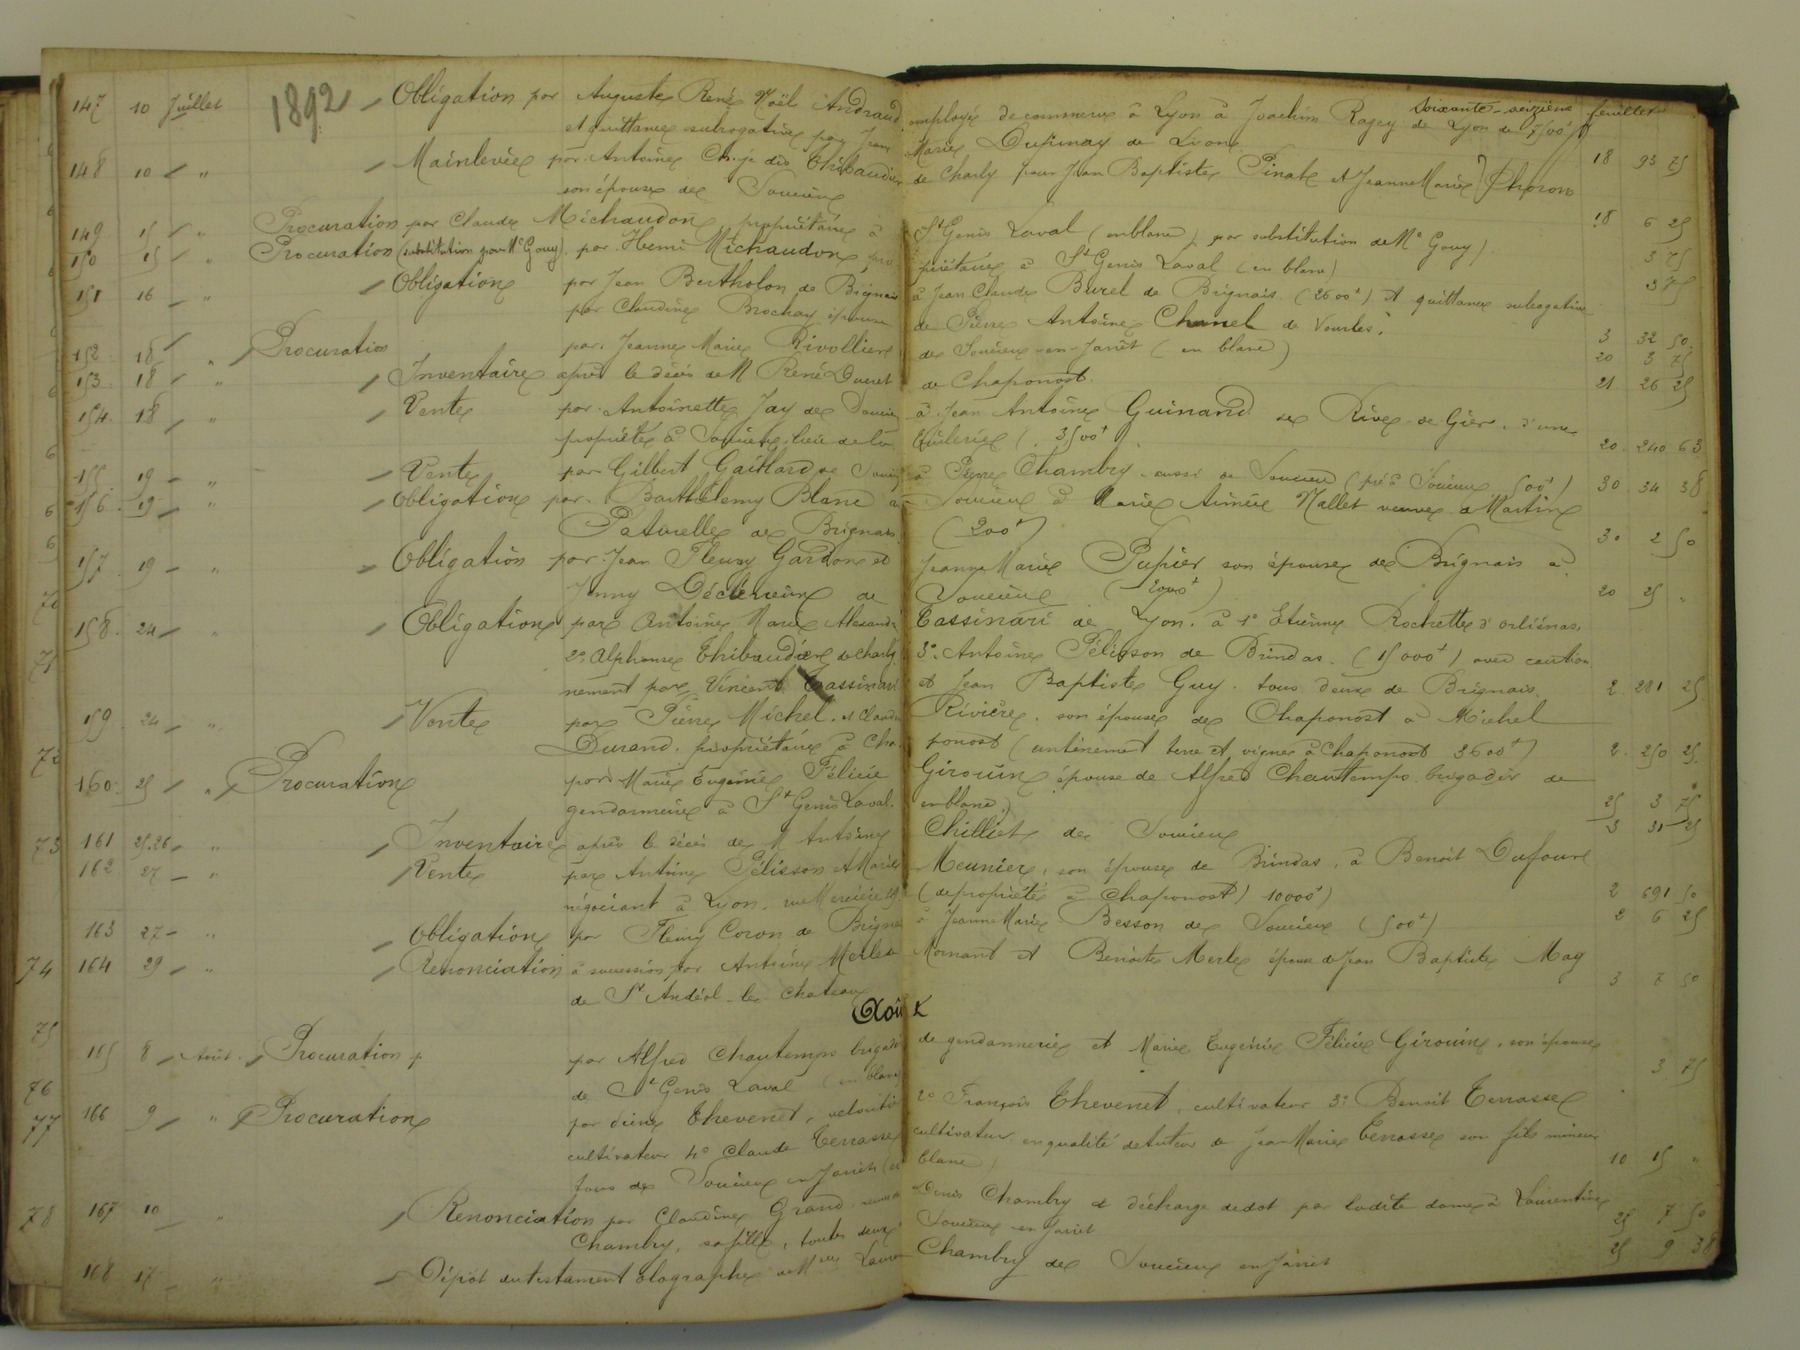 soixante-seizième feuillet
1892
147 10 Juillet Obligation par Auguste René Noël Andraud employé de commerce à Lyon à Joachim Ragey de Lyon
et quittance subrogative par Jean Marie Dupinay de Lyon 18 93 75
148 10 " Mainlevée par Antoine Thibaudier de Charly pour Jean Baptiste Pinat et Jeanne Marie Phoron
son épouse de Soucieu 18 6 25
149 15 " Procuration par Claude Michaudon propriétaire à St Genis Laval (en blanc) par substitution de Me Gouy) 3 75
150 15 " Procuration (substitution par Me Gouy) par Henri Michaudon propriétaire à St Genis Laval (en blanc) 3 75
151 16 " Obligation par Jean Bertholon de Brignais à Jean Claude Burel de Brignais (2600f) et quittance subrogative
par Claudine Brochay épouse de Pierre Antoine Chanel de Vourles. 3 32 50
152 18 " Procuration par Jeanne Marie Rivollier de Soucieu-en-Jarret (en blanc) 20 3 75
153 18 " Inventaire après le décès de M René Ducret de Chaponost. 21 26 25
154 18 " Vente par Antoinette Jay de Soucieu à Jean Antoine Guinand de Rive-de-Gier, d'une
propriété à Soucieu, lieu de la tuilerie (3500f) 20 240 63
155 19 " Vente par Gilbert Gaillard de Soucieu à Pierre Chambry aussi de Soucieu (pré à Soucieu 500f) 30 34 38
156 19 " Obligation par Barthélemy Blanc à Soucieu à Marie Aimée Mallet veuve de Martin
Paturelle de Brignais (200f) 30 2 50
157 19 " Obligation par Jean Fleury Gardon et Jeanne Marie Pupier son épouse de Brignais à
Jenny Déclérieux de Soucieu (2000f) 20 25 "
158 24 " Obligation par Antoine Marie Alexandre Cassinari de Lyon. à 1° Etienne Rochette d'orliénas,
2° Alphonse Thibaudier de Charly 3° Antoine Pélisson de Brindas. (15000f) avec caution
nement par Vincent Cassinari et Jean Baptiste Guy. tous deux de Brignais. 2 281 25
159 24 " Vente par Pierre Michel et Claudine Rivière, son épouse de Chaponost à Michel
Durand, propriétaire à Chaponost (un tènement terre et vigne à Chaponost 3600f) 2 250 25
160 25 " Procuration par Marie Eugénie Félicie Girouin épouse de Alfred Chautemps brigadier de
gendarmerie à St Genis Laval. en blanc) 25 3 75
161 25.26 " Inventaire après le décès de M Antoine Chilliet de Soucieu 3 31 25
162 27 " Vente par Antoine Pélisson et Marie Meunier, son épouse de Brindas, à Benoit Dufour
négociant à Lyon, rue Mercière (de propriété à Chaponost) 10000f) 2 691 50
163 27 " Obligation par Fleury Coron de Brignais à Jeanne Marie Besson de Soucieu (500f) 2 6 25
164 29 " Renonciation à succession par Antoine Merle de Mornant et Benoite Merle épouse de Jean Baptiste May
de St Andéol-le-Chateau 3 7 50
Août
165 8 Août Procuration par Alfred Chautemps brigadier de gendarmerie et Marie Eugénie Félicie Girouin, son épouse
de St Genis Laval (en blanc) 3 75
166 9 " Procuration par 2° François Thevenet, cultivateur 3° Benoit Terrasse
cultivateur 4° Claude Terrasse cultivateur en qualité de tuteur de Jean Marie Terrasse son fils mineur
tous de Soucieu en Jarret (en blanc) 10 15 "
167 10 " Renonciation par Claudine Grand veuve de Denis Chambry et décharge de dot par ladite dame à Laurentine
Chambry, sa fille, toutes deux Soucieu en Jarret 25 7 50
168 16 " Dépôt du testament olographe Chambry de Soucieu en Jarret 25 9 38
70
71
72
73
74
75
76
77
78